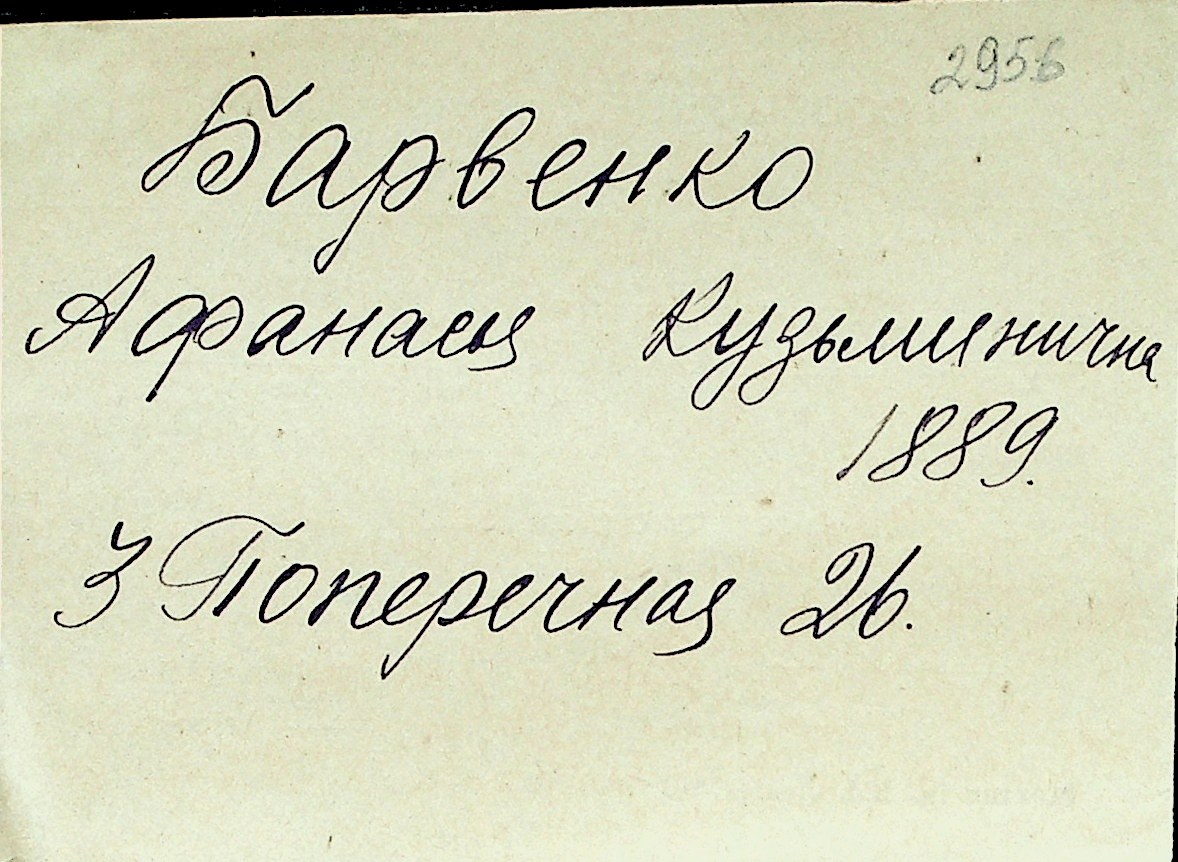 2956
Барвенко
Афанасия Кузьминична
1889.
3 Поперечная 26.